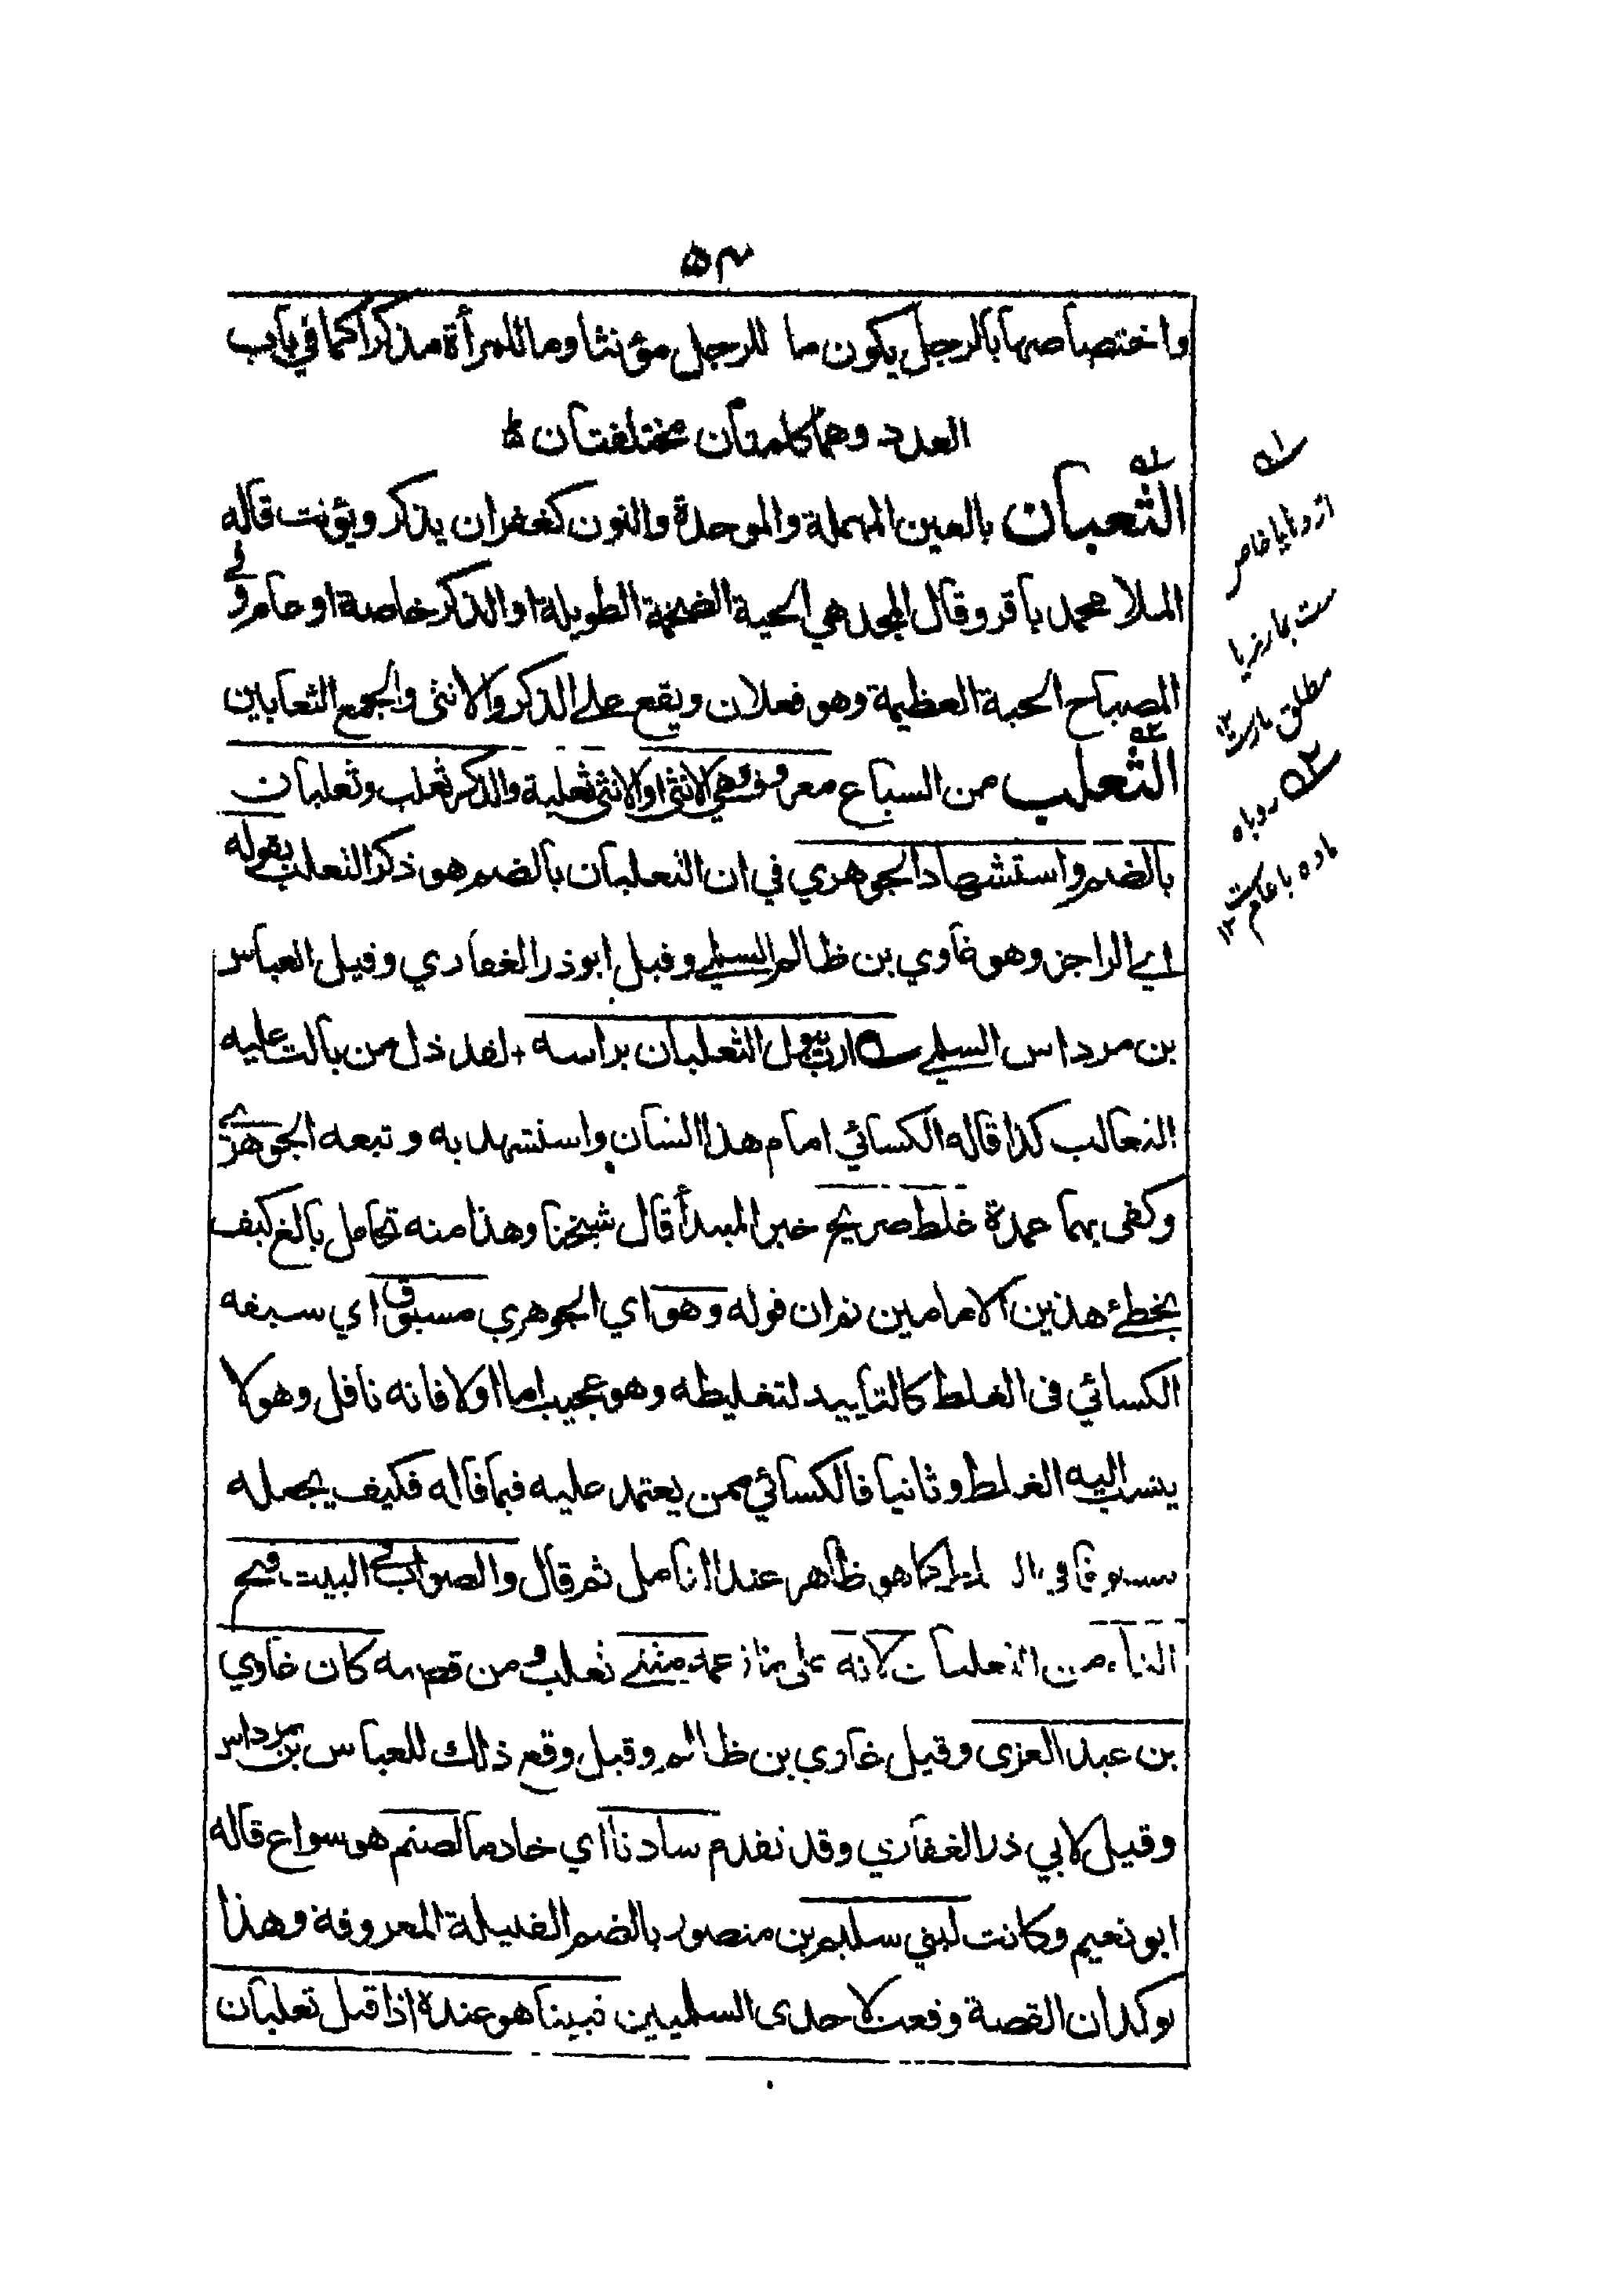 ۵۳
واختصاصها بالرجل يكون ما للرجل مؤنثا وما للمرأة مذكرا كما في باب
العدد وهما كلمتان مختلفتان
الثعبان بالعين المهملة والموحدة والنون كغفران يذكر ويؤنث قاله
الملا محمد باقر وقال المجد هي الحية الضخمة الطويلة او الذكر خاصة او عام وفي
المصباح الحية العظيمة وهو فعلان ويقع على الذكر والانثى والجمع الثعابين
الثعلب من السباع معروف وهي الانثى او الانثى ثعلبة والذكر ثعلب وثعلبان
بالضم واستشهاد الجوهري في ان الثعلبان بالضم هو ذكر الثعلب بقوله
اي الراجز وهو غاوي بن ظالم السلمي وقيل ابوذر الغفاري وقيل العباس
بن مرداس السلمي ارب يبول الثعلبان براسه + لقد ذل من بالت عليه
الثعالب كذا قاله الكسائي امام هذا الشان واستشهد به وتبعه الجوهري
وكفى بهما عمدة غلط صريح خبر المبتدأ قال شيخنا وهذا منه تحامل بالغ كيف
يخطئ هذين الامامين ثم ان قوله وهو اي الجوهري مسبوق اي سبقه
الكسائي فى الغلط كالتأييد لتغليطه وهو عجيب اما اولا فانه ناقل وهو لا
ينسب اليه الغلط وثانيا فالكسائي ممن يعتمد عليه فيما قاله فكيف يجعله
مسبوقا في الغلط كما هو ظاهر عند التامل ثم قال والصواب في البيت فتح
الثاء من الثعلبان لانه على مثنى ثعلب ومن قصته كان غاوي
بن عبد العزى وقيل غاوي بن ظالم وقيل وقع ذلك للعباس بن مرداس
وقيل لابي ذر الغفاري وقد تقدم سادنا اي خادما لصنم هو سواع قاله
ابو نعيم وكانت لبني سليم بن منصور بالضم القبيلة المعروفة وهذا
يوكد ان القصة وقعت لاحدى السلميين فبينا هو عنده اذا قبل ثعلبان
۱
اژدها یا خاص
ست بمار نر یا
مطلق مارست ۱۲
۲ روباه
ماده یا عام ست ۱۲